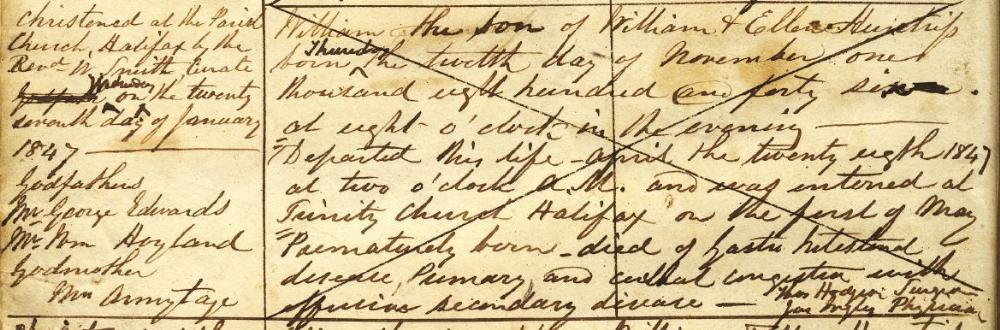 Christened at the Parish
Church, Halifax by the
Revd W Smith, Curate
Wednesday
on the twenty
seventh day of January
1847
Godfathers
Mr George Edwards
Mr Wm Hoyland
Godmother
Mrs Armytage
William the son of William & Ellen
Thursday
born the twelth day of November one
thousand eight hundred and forty six.
at eight o'clock in the evening
Departed this life - April the twenty eigth 1847
at two o'clock A.M. and was interred at
Trinity Church Halifax on the first of May
Prematurely born - died of Gastro Intestinal
disease, Primary, and cerebral congestion with
effusion secondary disease -
Surgeon
Physician